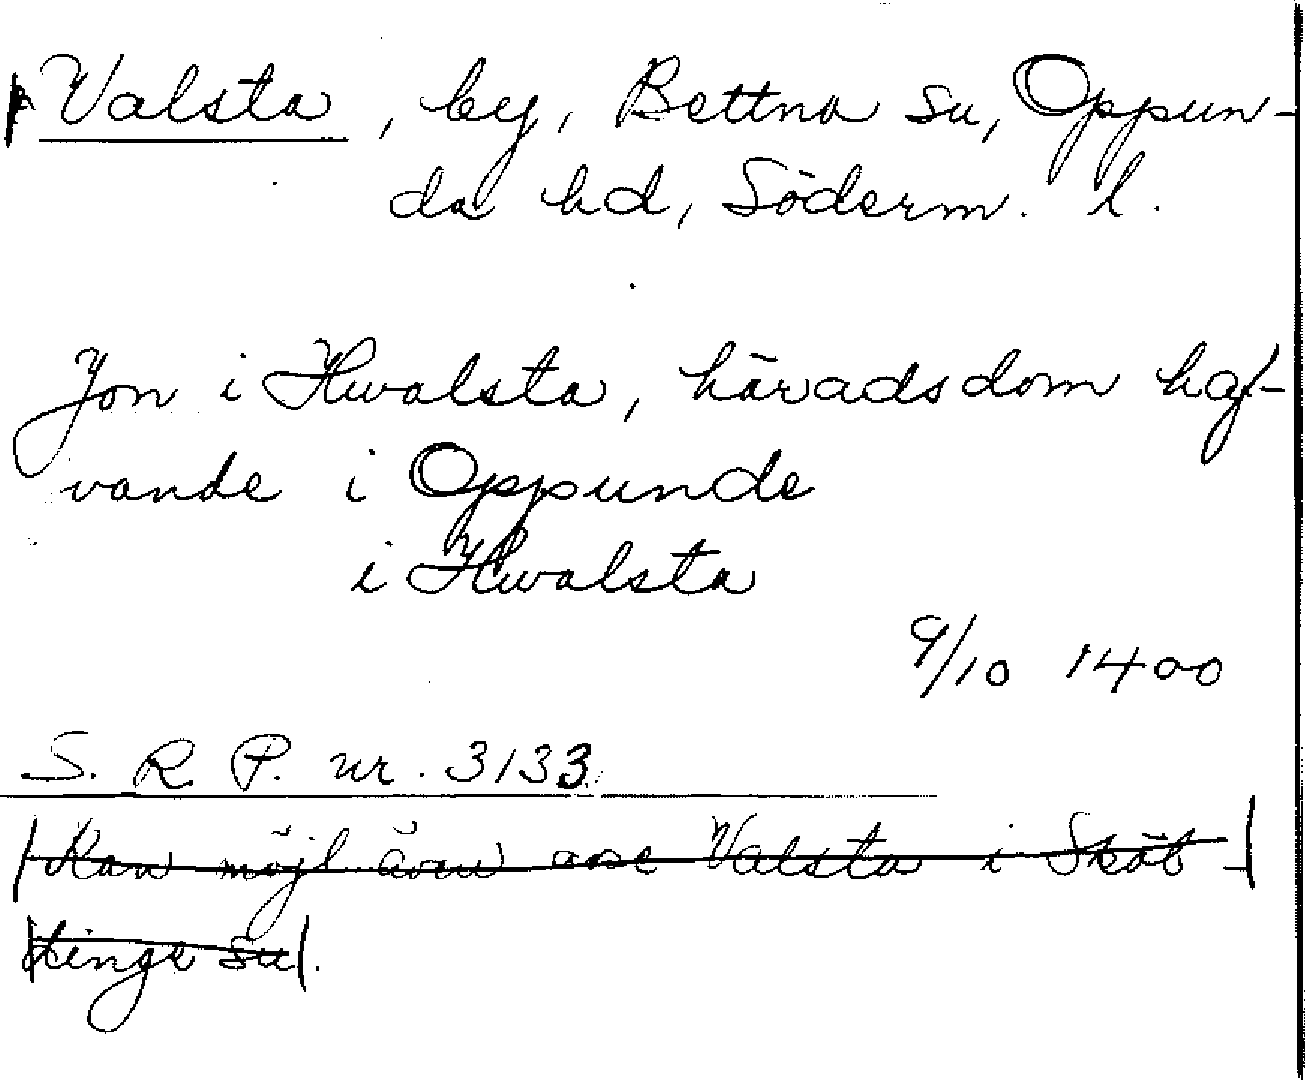 Valsta, by, Bettna sn, Oppun-
da hd, Söderm. l.
Jon i Hwalsta, häradsdom haf-
vande i Oppunde
i Hwalsta
9/10 1400
S. R. P. nr. 3133.
Kan möjl även avse Valsta i Sköl-
dinge sn.